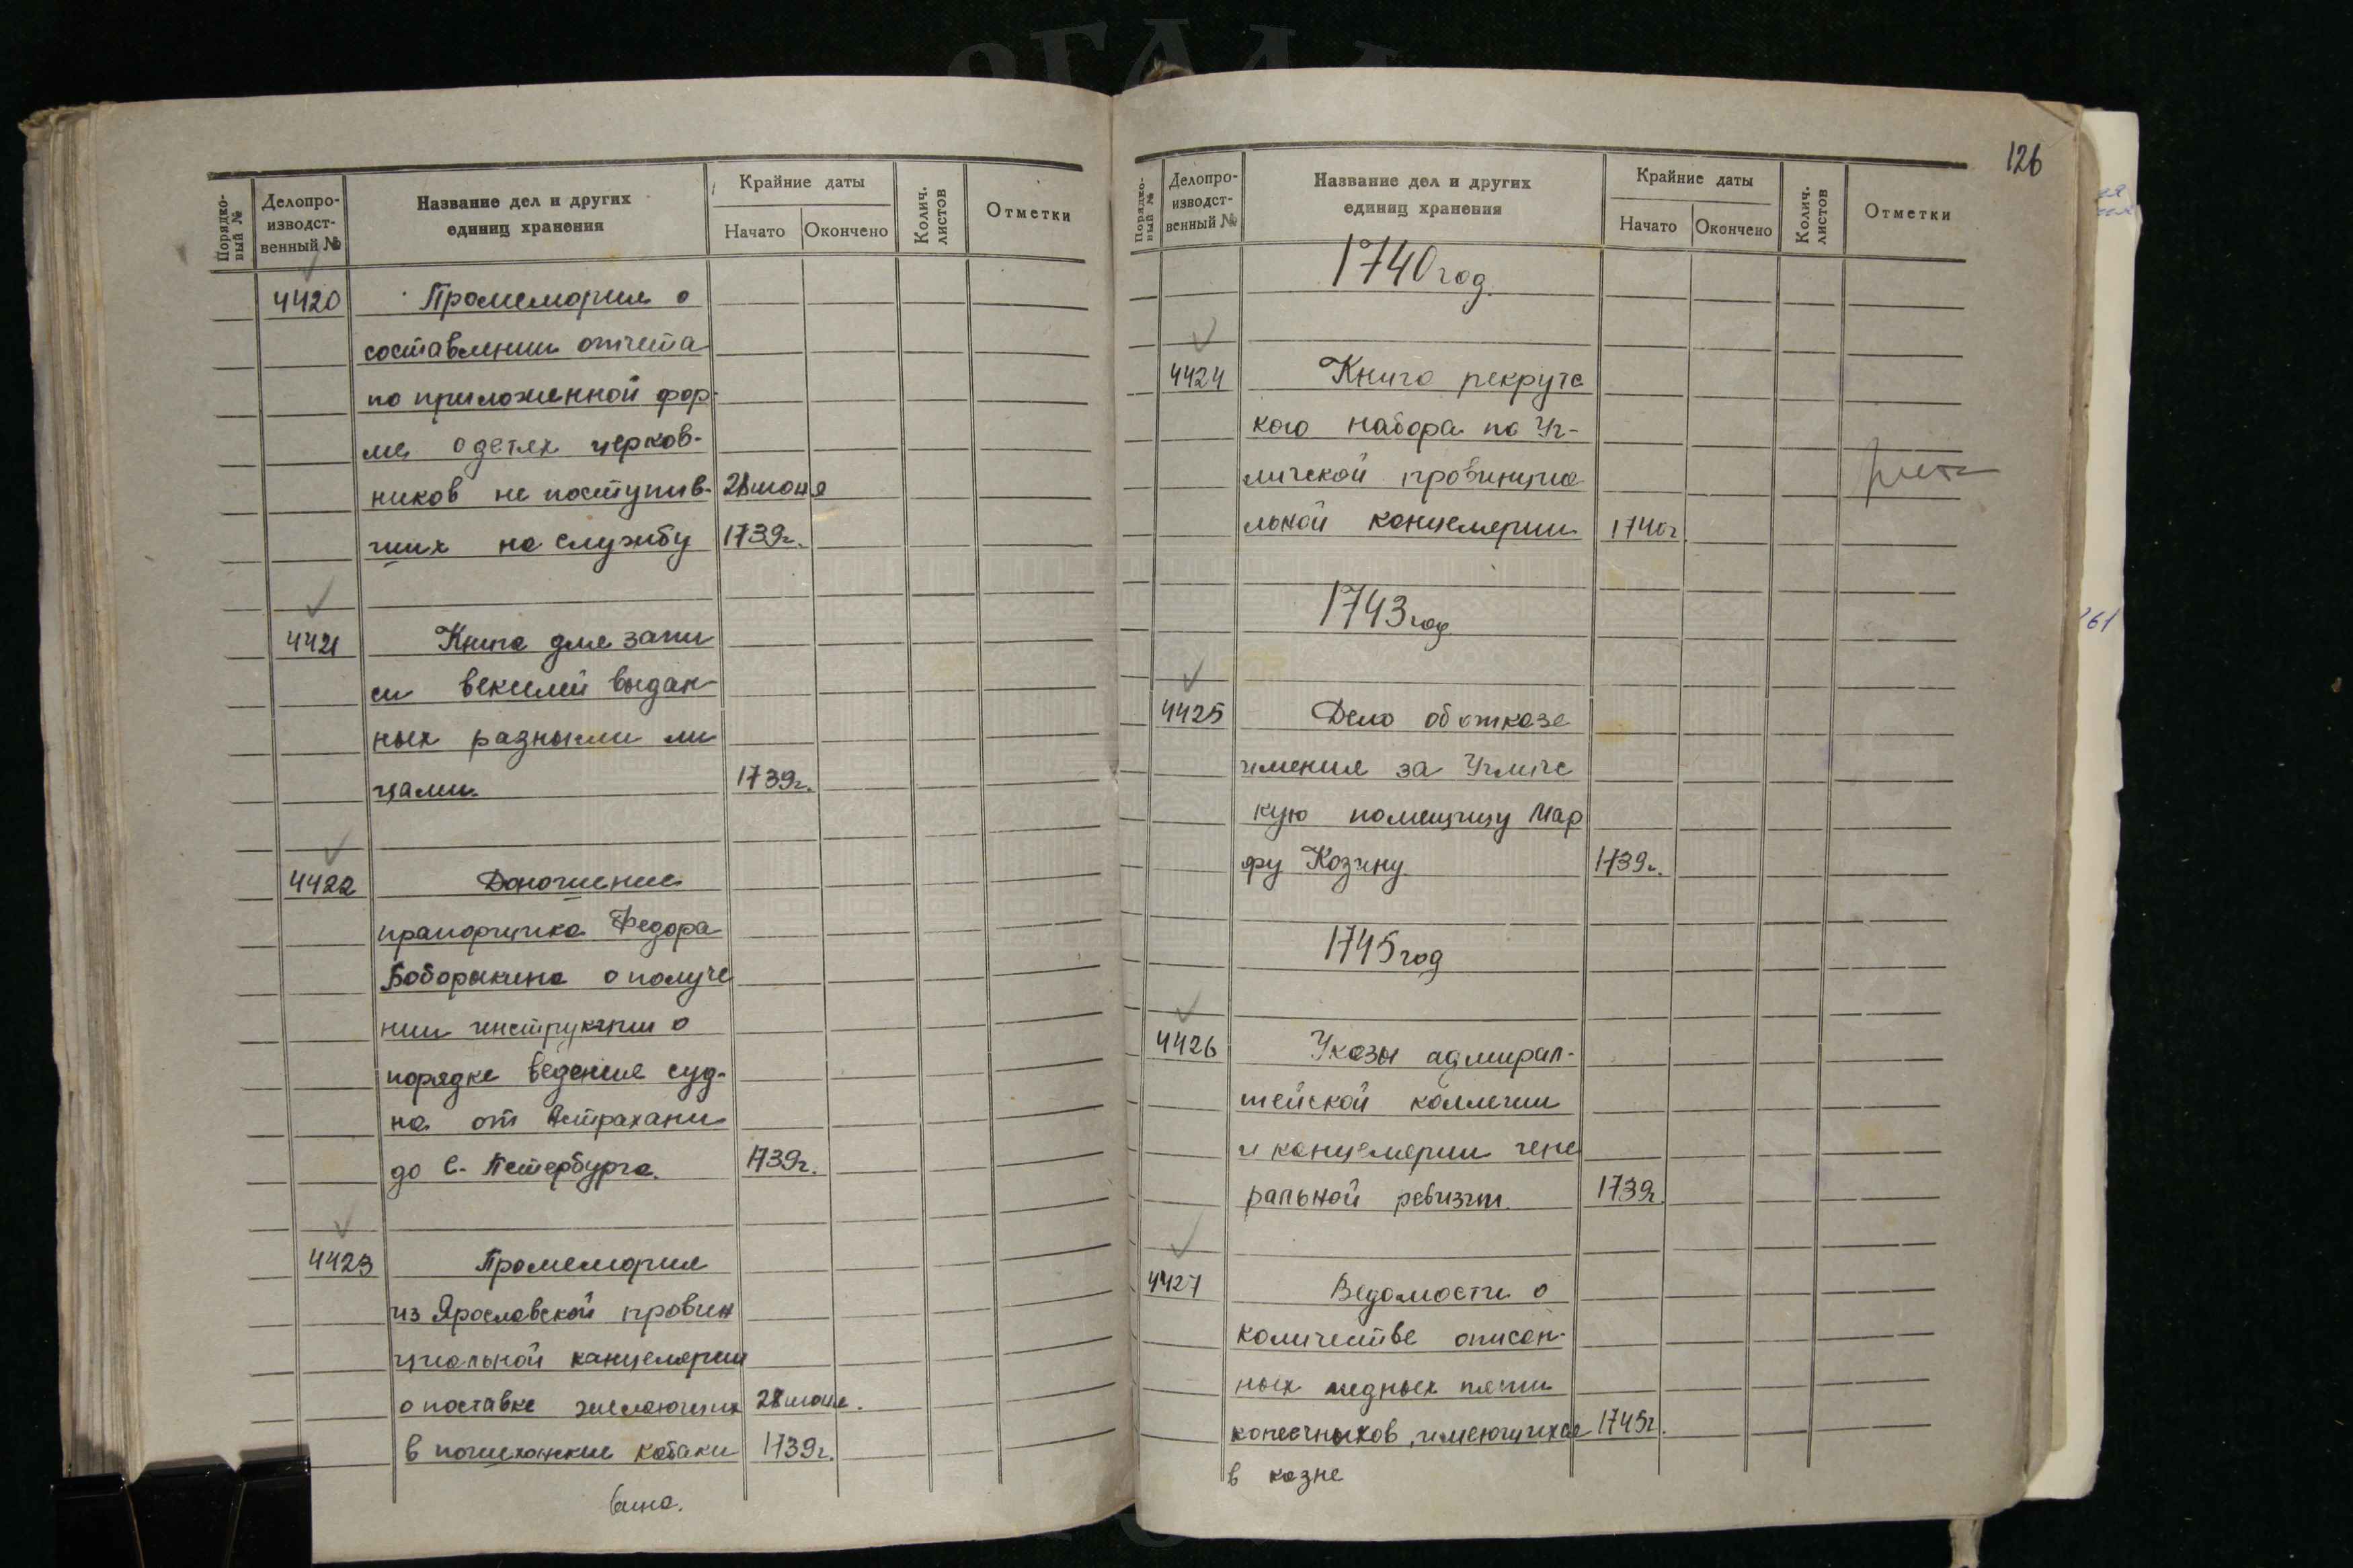 Порядко-
вый №
Делопро-
изводст-
венный №
Название дел и других
единиц хранения
Крайние даты
Начато
Окончено
Колич.
листов
Отметки
4420 Промемория о
составлении отчета
по приложенной фор-
ме о детях церков-
ников не поступив- 28 июня
ших на службу 1739г.
4421 Книга для запи
си векселей выдан
ных разными ли
цами. 1739г.
4422 Доношение
прапорщика Федора
Боборыкина о получе
нии инструкции о
порядке ведения суд-
на от Астрахани
до С. Петербурга. 1739г.
4423 Промемория
из Ярославской провин
циальной канцелярии
о поставке желающих 28 июня.
в пошехонские кабаки 1739г.
вина.
126
Порядко-
вый №
Делопро-
изводст-
венный №
Название дел и других
единиц хранения
Крайние даты
Начато
Окончено
Колич.
листов
Отметки
1740 год
4424 Книга рекрутс
кого набора по Уг-
личской провинциа
льной канцелярии 1740г
1743 год
4425 Дело об отказе
имения за Угличс
кую помещицу Мар
фу Козину 1739г.
1745 год
4426 Указы адмирал-
тейской коллегии
и канцелярии гене
ральной ревизии. 1739г
4427 Ведомости о
количестве описан-
ных медных пяти
копеечников, имеющихся 1745г.
в казне
161